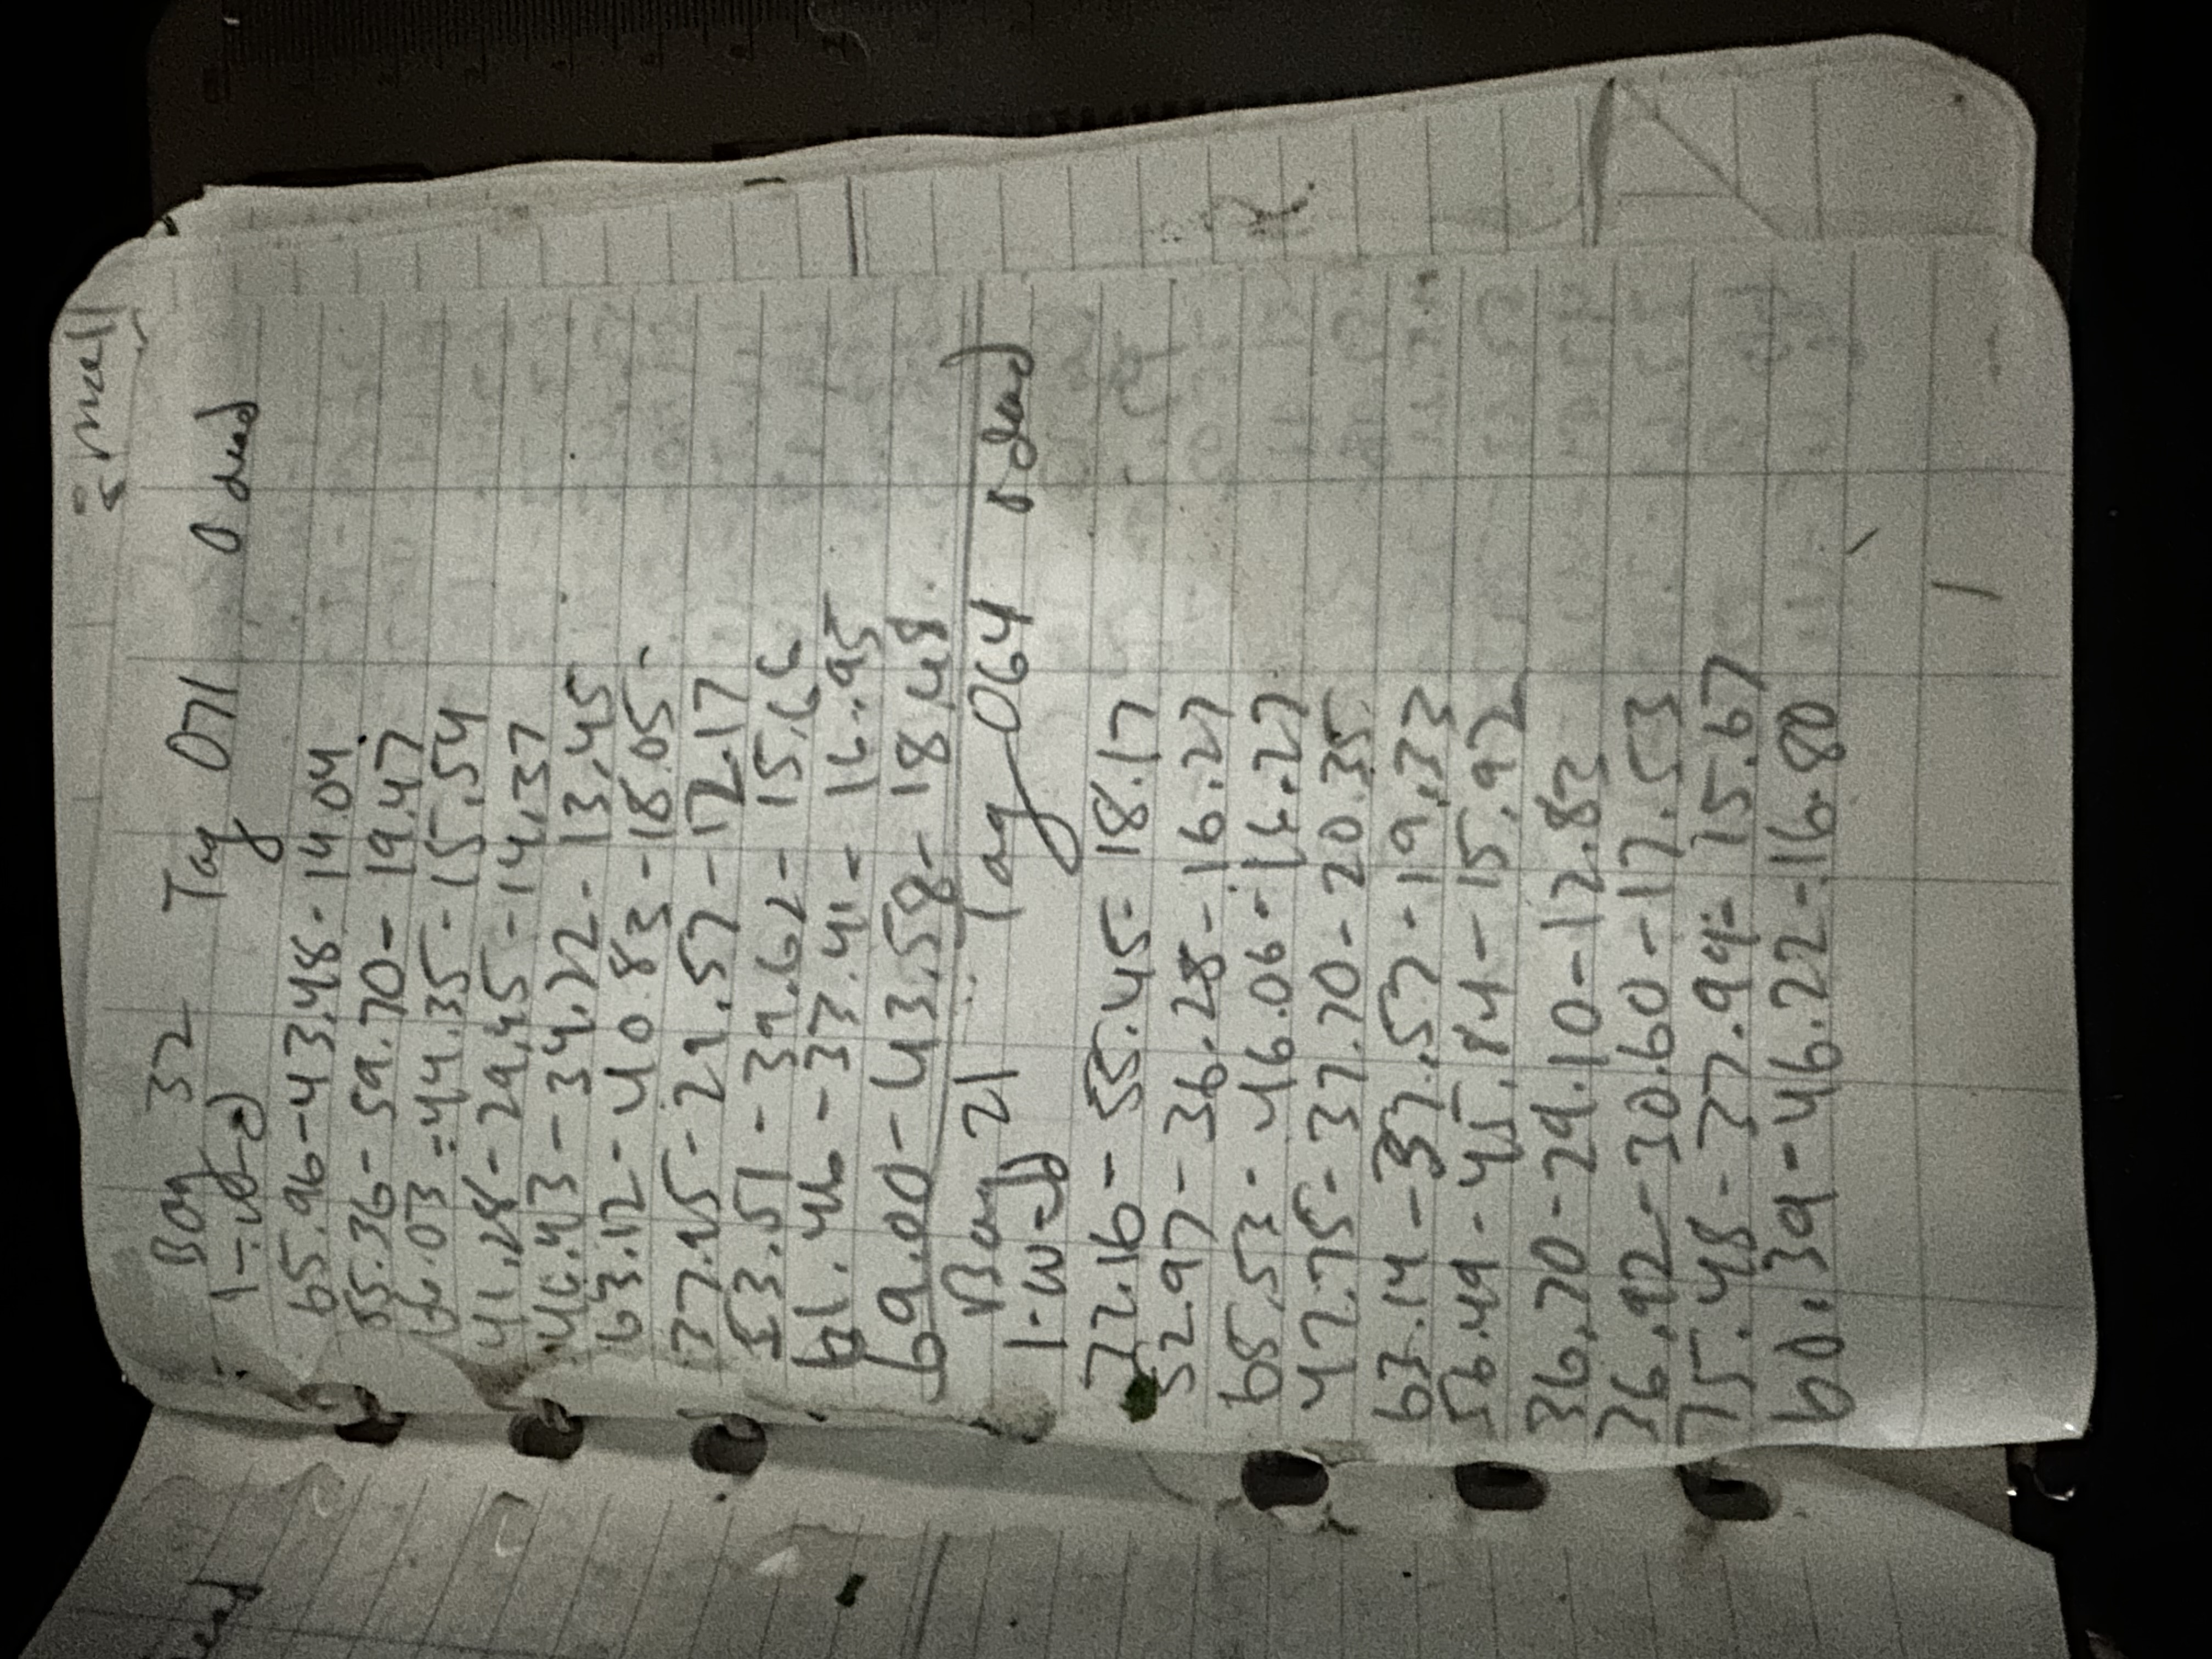 small
Bag 32 Tag 071 0 dead
65.96-43.48-14.04
55.36-59.70-19.47
46.03-44.35-15.54
41.28-29.45-14.37
46.43-34.72-13.45
63.12-40.83-18.05
77.45-29.57-12.17
53.51-39.62-15.66
61.46-37.41-16.95
69.00-43.58-18.48
Bag 21 Tag 064 0 dead
72.16-55.45-18.17
52.97-36.28-16.27
65.53-46.06-16.27
47.75-37.70-20.35
63.14-37.57-19.33
56.49-45.84-15.92
36.70-29.10-12.83
36.92-30.60-17.53
75.48-77.94-15.67
60.39-46.22-16.80